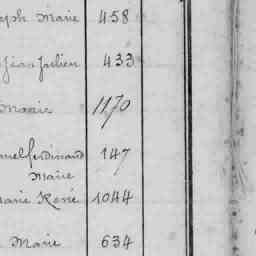 eph Marie 458
Jean Julien 433
Marie 1170
uel ferdinand 147
Marie
Marie René 1044
Marie 634